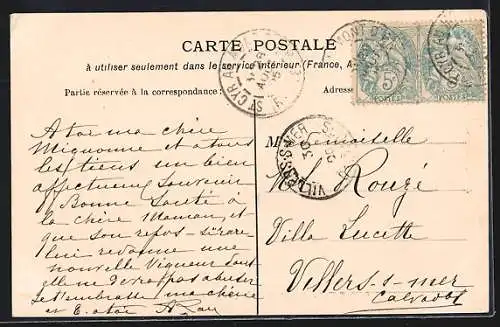 CARTE POSTALE
à utiliser seulement dans le service intérieur (France, A
Partie réservée à la correspondance:
Adresse
A toi ma chère
Mignonne et à tous
les tiens un bien
affectueux Souvenir
Bonne Santé à
la chère Maman, et
que son repos
lui redonne une
nouvelle Vigueur dont
elle ne devra pas abuser
Je t'embrasse ma chérie
et à toi
Mademoiselle
M. Rouzé
Villa Lucette
Villers-s-mer
Calvados
ST CYR AU MONT D'OR
5c
POSTES
VILLERS S MER